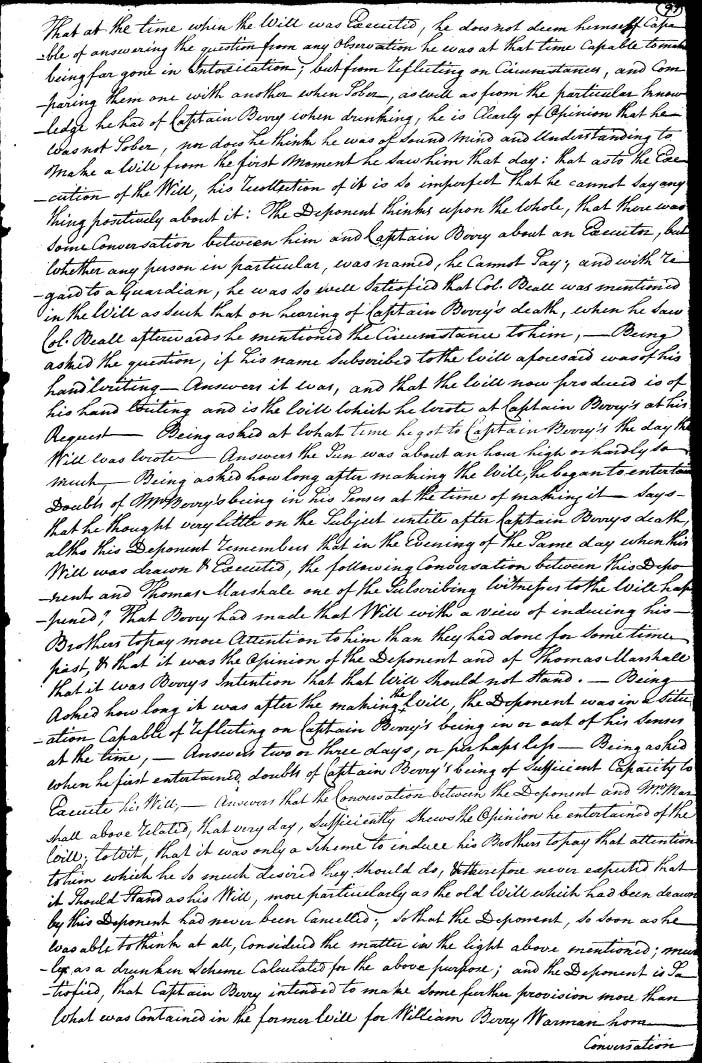 97
That at the time when the Will was Executed, he does not deem himself Capa
-ble of answering the question from any Observation he was at that time Capable to make
being far gone in Intoxication; but from reflecting on Circumstances, and Com
-paring them one with another when Sober, as well as from the particular know
-ledge he had of Captain Berry when drinking, he is Clearly of Opinion that he
was not Sober, nor does he think he was of Sound Mind and Understanding to
Make a Will from the first Moment he saw him that day: that as to the Exe
-cution of the Will, his recollection of it is so imperfect that he cannot Say any
thing positively about it: The Deponent thinks upon the whole, that there was
Some Conversation between him and Captain Berry about an Executor, but
Whether any person in particular, was named, he Cannot Say; and with re
-gard to a Guardian, he was so well Satisfied that Col. Beall was mentioned
in the Will as such that on hearing of Captain Berry's death, when he saw
Col. Beall afterwards he mentioned the Circumstance to him, — Being
asked the question, if his name Subscribed to the Will aforesaid was of his
hand writing — Answers it was, and that the Will now produced is of
his hand Writing and is the Will which he wrote at Captain Berry's at his
Request — Being asked at what time he got to Captain Berry's the day the
Will was wrote — Answers the Sun was about an hour high or hardly so
much, — Being asked how long after making the Will, he began to entertain
Doubts of Mr Berry's being in his Senses at the time of making it — says -
that he thought very little on the Subject untill after Captain Berrys death,
altho this Deponent remembers that in the Evening of the Same day when this
Will was drawn & Executed, the following Conversation between this Depo-
-nent and Thomas Marshall one of the Subscribing Witnesses to the Will hap
-pened; That Berry had made that Will with a view of inducing his —
Brothers to pay more Attention to him than they had done for Some time
past, & that it was the Opinion of the Deponent and of Thomas Marshall
that it was Berry's Intention that that Will should not Stand. — Being
Asked how long it was after the making the Will, the Deponent was in a situ
-ation Capable of reflecting on Captain Berry's being in or out of his Senses
at the time, — Answers two or three days, or perhaps less — Being asked
when he first entertained doubts of Captain Berry's being of Sufficient Capacity to
Execute his Will, — Answers that the Conversation between the Deponent and Mr Mar
shall above related, that very day, Sufficiently Shews the Opinion he entertained of the
Will; to wit, that it was only a Scheme to induce his Brothers to pay that attention
to him which he so much desired they should do, & therefore never expected that
it Should Stand as his Will, more particularly as the old Will which had been drawn
by this Deponent had never been Cancelled; So that the Deponent, so soon as he
was able to think at all, Considered the matter in the light above mentioned; mere
-ly as a drunken Scheme Calculated for the above purpose; and the Deponent is Sa
-tisfied, that Captain Berry intended to make Some further provision more than
What was Contained in the former Will for William Berry Warman from
Conversation